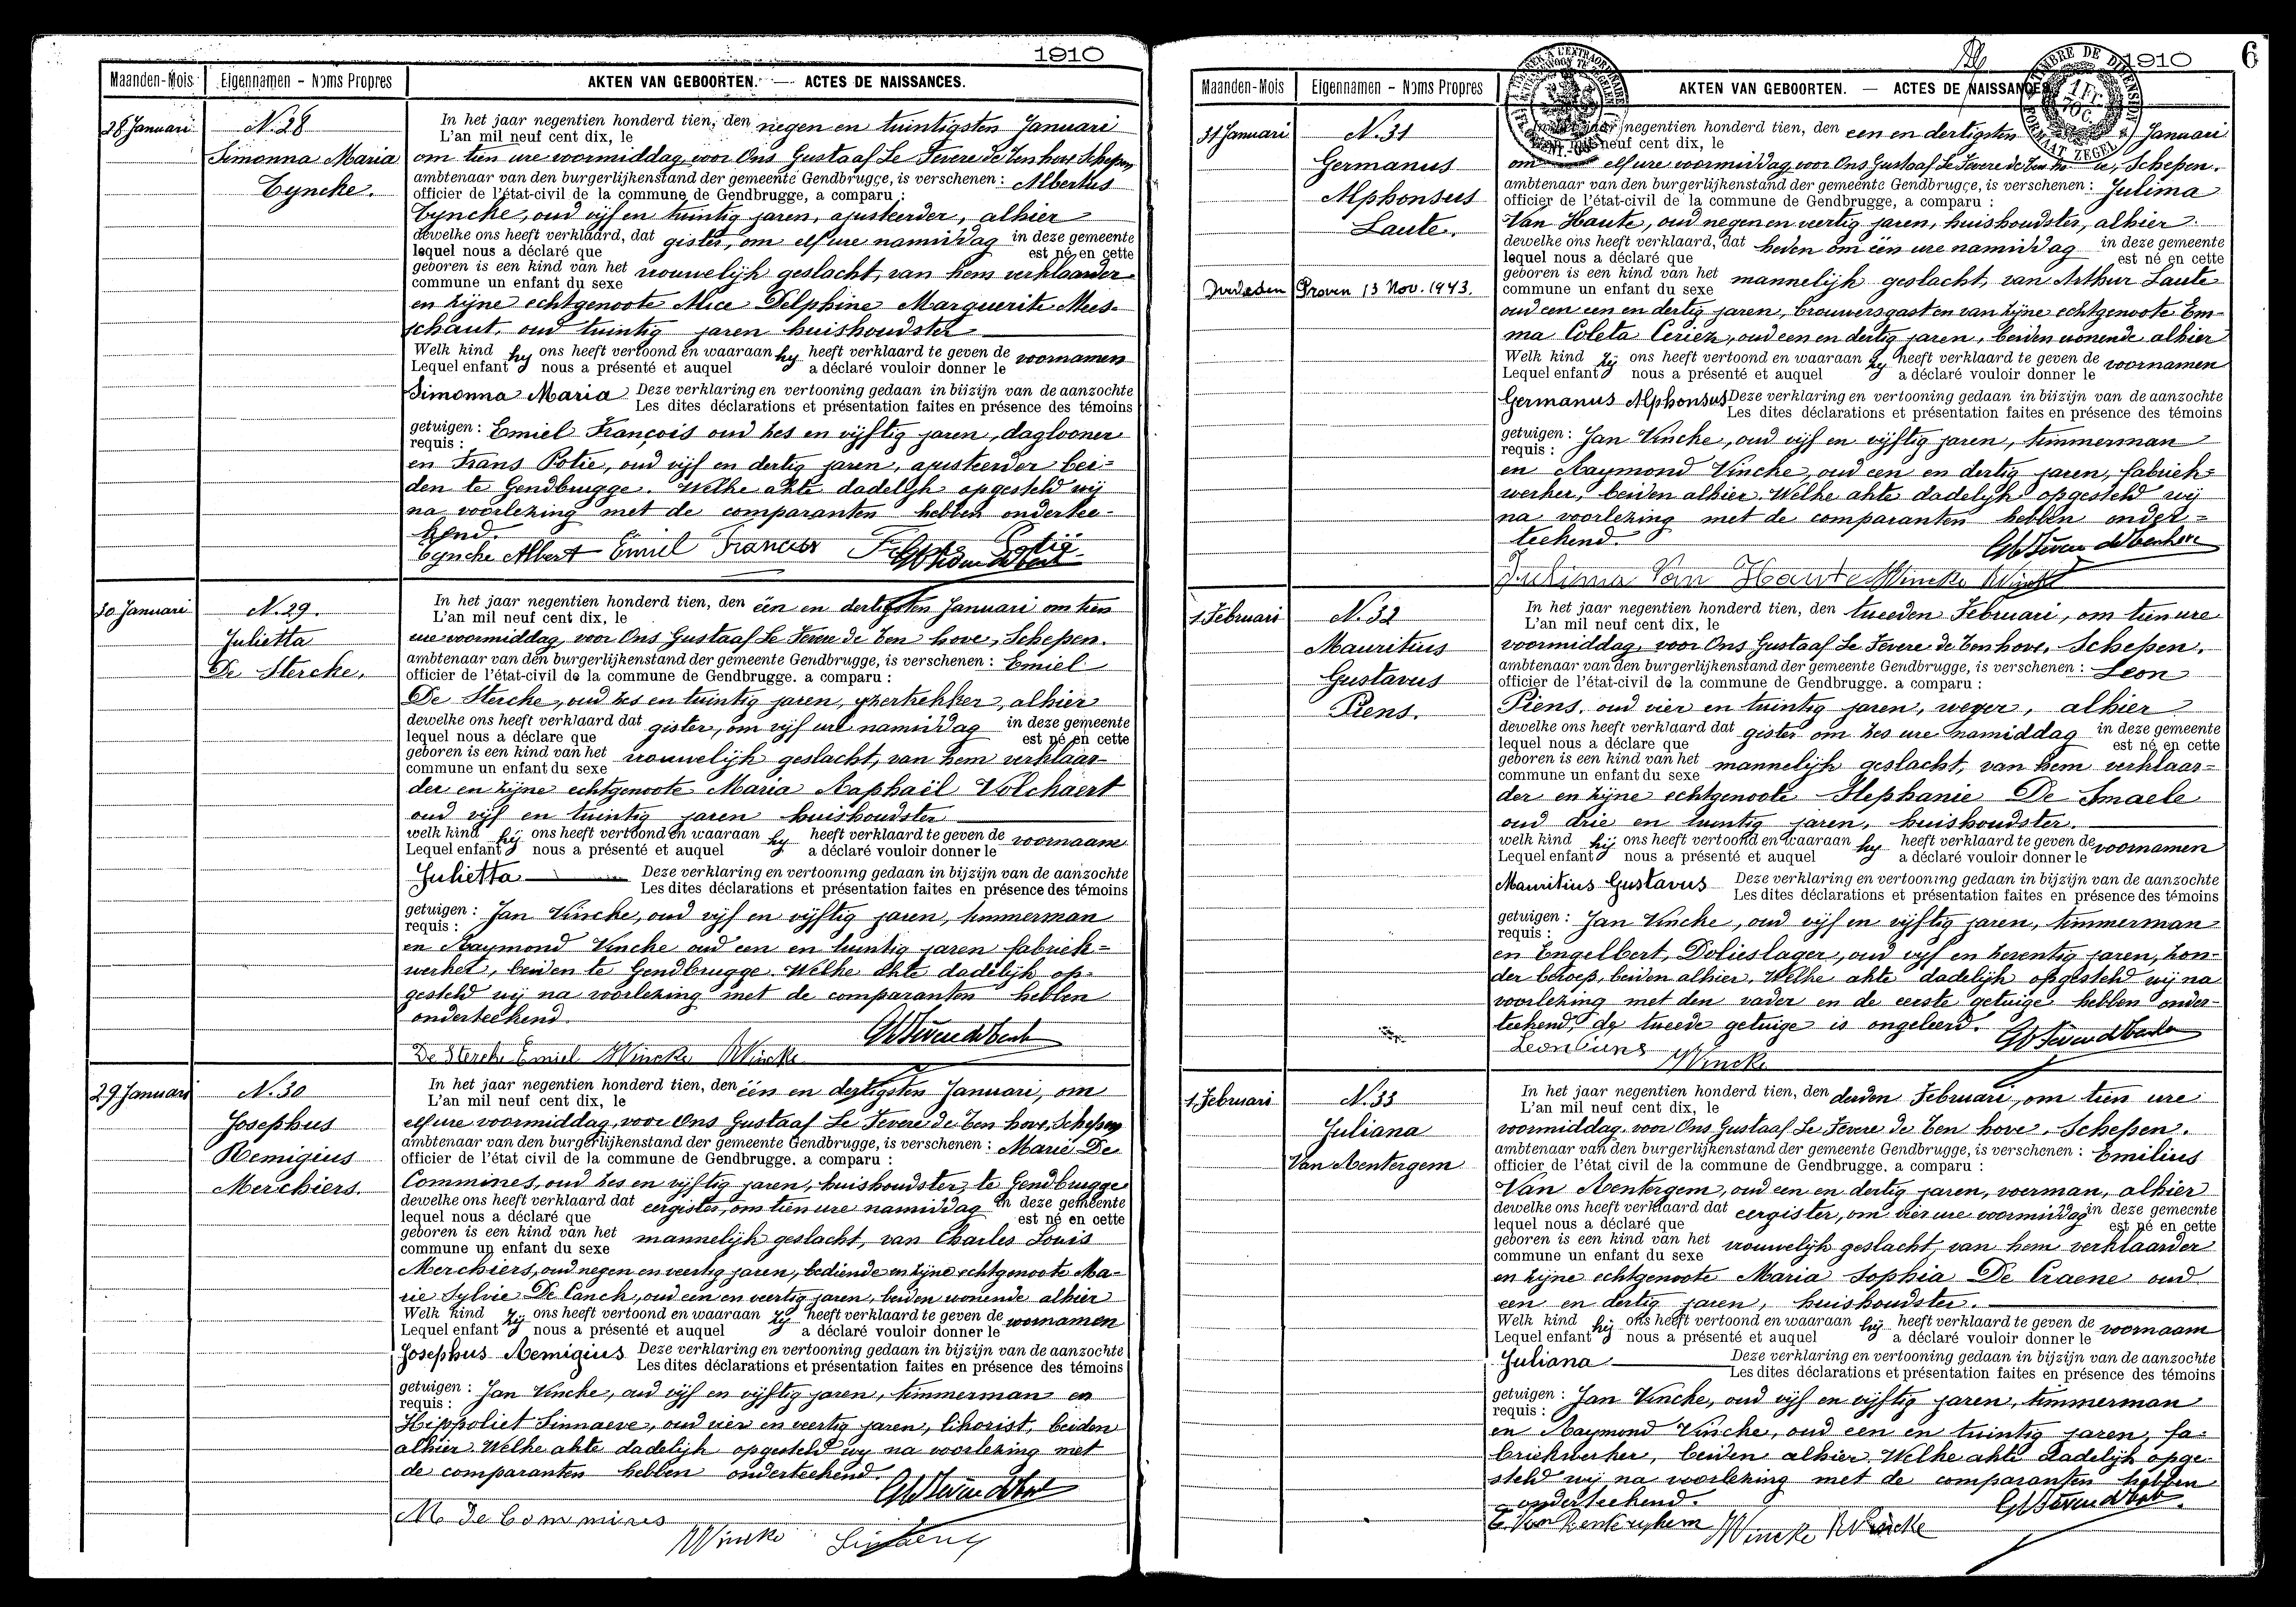 1910
Maanden-Mois Eigennamen - Noms Propres AKTEN VAN GEBOORTEN. — ACTES DE NAISSANCES.
28 Januari
N. 28
Simonna Maria
Eyncke.
In het jaar negentien honderd tien, den negen en twintigsten Januari
L'an mil neuf cent dix, le
om tien ure voormiddag voor Ons Gustaaf Le Fevere de Ten hove Schepen,
ambtenaar van den burgerlijkenstand der gemeente Gendbrugge, is verschenen : Albertus
officier de l'état-civil de la commune de Gendbrugge, a comparu :
Eyncke, oud vijf en twintig jaren, ajusteerder, alhier
dewelke ons heeft verklaard, dat gister, om elf ure namiddag in deze gemeente
lequel nous a déclaré que est né en cette
geboren is een kind van het vrouwelijk geslacht, van hem verklaarder
commune un enfant du sexe
en zijne echtgenoote Alice Delphine Marguerite Mees-
schaut, oud twintig jaren huishoudster
Welk kind hy ons heeft vertoond en waaraan hy heeft verklaard te geven de voornamen
Lequel enfant nous a présenté et auquel a déclaré vouloir donner le
Simonna Maria Deze verklaring en vertooning gedaan in bijzijn van de aanzochte
Les dites déclarations et présentation faites en présence des témoins
getuigen : Emiel François oud zes en vijftig jaren, daglooner
requis :
en Frans Potié, oud vijf en dertig jaren, ajusteerder bei=
den te Gendbrugge. Welke akte dadelijk opgesteld wij
na voorlezing met de comparanten hebben ondertee-
kend.
Eyncke Albert Emiel Francois
30 Januari
N. 29.
Julietta
De Stercke.
In het jaar negentien honderd tien, den één en dertigsten Januari om tien
L'an mil neuf cent dix, le
ure voormiddag, voor Ons Gustaaf Le Fevere de Ten hove, Schepen.
ambtenaar van den burgerlijkenstand der gemeente Gendbrugge, is verschenen : Emiel
officier de l'état-civil de la commune de Gendbrugge. a comparu :
De Stercke, oud zes en twintig jaren, yzertrekker, alhier
dewelke ons heeft verklaard dat gister, om vijf ure namiddag in deze gemeente
lequel nous a déclare que est né en cette
geboren is een kind van het vrouwelijk geslacht, van hem verklaar-
commune un enfant du sexe
der en zijne echtgenoote Maria Raphaël Volckaert
oud vijf en twintig jaren huishoudster
welk kind hij ons heeft vertoond en waaraan hy heeft verklaard te geven de voornaam
Lequel enfant nous a présenté et auquel a déclaré vouloir donner le
Julietta Deze verklaring en vertooning gedaan in bijzijn van de aanzochte
Les dites déclarations et présentation faites en présence des témoins
getuigen : Jan Vincke, oud vijf en vijftig jaren, timmerman
requis :
en Raymond Vincke oud een en twintig jaren fabriek=
werker, beiden te Gendbrugge. Welke akte dadelijk op-
gesteld wij na voorlezing met de comparanten hebben
onderteekend.
De Stercke Emiel JVincke RVincke
29 Januari
N. 30
Josephus
Remigius
Merchiers.
In het jaar negentien honderd tien, den één en dertigsten Januari, om
L'an mil neuf cent dix, le
elf ure voormiddag, voor Ons Gustaaf Le Fevere de Ten hove, Schepen
ambtenaar van den burgerlijkenstand der gemeente Gendbrugge, is verschenen : Marie De
officier de l'état civil de la commune de Gendbrugge. a comparu :
Commines, oud zes en vijftig jaren, huishoudster, te Gendbrugge
dewelke ons heeft verklaard dat eergister, om tien ure namiddag in deze gemeente
lequel nous a déclaré que est né en cette
geboren is een kind van het mannelijk geslacht, van Charles Louis
commune un enfant du sexe
Merchiers, oud negen en veertig jaren, bediende en zijne echtgenoote Ma-
rie Sylvie De Canck, oud een en veertig jaren, beiden wonende alhier
Welk kind zij ons heeft vertoond en waaraan zij heeft verklaard te geven de voornamen
Lequel enfant nous a présenté et auquel a déclaré vouloir donner le
Josephus Remigius Deze verklaring en vertooning gedaan in bijzijn van de aanzochte
Les dites déclarations et présentation faites en présence des témoins
getuigen : Jan Vincke, oud vijf en vijftig jaren, timmerman en
requis :
Hippoliet Sinnaeve, oud vier en veertig jaren, likorist, beiden
alhier. Welke akte dadelijk opgesteld wy na voorlezing met
de comparanten hebben onderteekend.
M De Commines
JVincke
1910
6
Maanden-Mois Eigennamen - Noms Propres AKTEN VAN GEBOORTEN. — ACTES DE NAISSANCES.
TIMBRE DE DIMENSION
1 Fr. 70 C.
FORMAAT ZEGEL
31 Januari
N. 31
Germanus
Alphonsus
Laute.
Overleden Proven 13 Nov. 1943.
negentien honderd tien, den een en dertigsten Januari
neuf cent dix, le
om elf ure voormiddag, voor Ons Gustaaf Le Fevere de Ten ho ve, Schepen.
ambtenaar van den burgerlijkenstand der gemeente Gendbrugge, is verschenen : Julima
officier de l'état-civil de la commune de Gendbrugge, a comparu :
Van Haute, oud negen en veertig jaren, huishoudster, alhier
dewelke ons heeft verklaard, dat heden om één ure namiddag in deze gemeente
lequel nous a déclaré que est né en cette
geboren is een kind van het mannelijk geslacht, van Arthur Laute
commune un enfant du sexe
oud een en dertig jaren, brouwersgast en van zijne echtgenoote Em-
ma Coleta Ceriez, oud een en dertig jaren, beiden wonende alhier
Welk kind zij ons heeft vertoond en waaraan zy heeft verklaard te geven de voornamen
Lequel enfant nous a présenté et auquel a déclaré vouloir donner le
Germanus Alphonsus Deze verklaring en vertooning gedaan in bijzijn van de aanzochte
Les dites déclarations et présentation faites en présence des témoins
getuigen : Jan Vincke, oud vijf en vijftig jaren, timmerman
requis :
en Raymond Vincke, oud een en dertig jaren, fabriek=
werker, beiden alhier. Welke akte dadelijk opgesteld wij
na voorlezing met de comparanten hebben onder=
teekend.
Julima Van Haute JVincke RVincke
1 Februari
N. 32
Mauritius
Gustavus
Piens.
In het jaar negentien honderd tien, den tweeden Februari, om tien ure
L'an mil neuf cent dix, le
voormiddag, voor Ons Gustaaf Le Fevere de Ten hove, Schepen.
ambtenaar van den burgerlijkenstand der gemeente Gendbrugge, is verschenen : Leon
officier de l'état-civil de la commune de Gendbrugge. a comparu :
Piens, oud vier en twintig jaren, weger, alhier
dewelke ons heeft verklaard dat gister om zes ure namiddag in deze gemeente
lequel nous a déclare que est né en cette
geboren is een kind van het mannelijk geslacht, van hem verklaar=
commune un enfant du sexe
der en zijne echtgenoote Stephanie De Smaele
oud drie en twintig jaren, huishoudster.
welk kind hij ons heeft vertoond en waaraan hy heeft verklaard te geven de voornamen
Lequel enfant nous a présenté et auquel a déclaré vouloir donner le
Mauritius Gustavus Deze verklaring en vertooning gedaan in bijzijn van de aanzochte
Les dites déclarations et présentation faites en présence des témoins
getuigen : Jan Vincke, oud vijf en vijftig jaren, timmerman
requis :
en Engelbert Dolieslager, oud vijf en zeventig jaren, zon-
der beroep, beiden alhier. Welke akte dadelijk opgesteld wij na
voorlezing met den vader en de eerste getuige hebben onder-
teekend, de tweede getuige is ongeleerd.
Leon Piens JVincke
1 Februari
N. 33
Juliana
Van Rentergem
In het jaar negentien honderd tien, den derden Februari, om tien ure
L'an mil neuf cent dix, le
voormiddag, voor Ons Gustaaf Le Fevere de Ten hove, Schepen.
ambtenaar van den burgerlijkenstand der gemeente Gendbrugge, is verschenen : Emilius
officier de l'état civil de la commune de Gendbrugge. a comparu :
Van Rentergem, oud een en dertig jaren, voerman, alhier
dewelke ons heeft verklaard dat eergister, om vier ure voormiddag in deze gemeente
lequel nous a déclaré que est né en cette
geboren is een kind van het vrouwelijk geslacht, van hem verklaarder
commune un enfant du sexe
en zijne echtgenoote Maria Sophia De Craene oud
een en dertig jaren, huishoudster.
Welk kind hij ons heeft vertoond en waaraan hij heeft verklaard te geven de voornaam
Lequel enfant nous a présenté et auquel a déclaré vouloir donner le
Juliana Deze verklaring en vertooning gedaan in bijzijn van de aanzochte
Les dites déclarations et présentation faites en présence des témoins
getuigen : Jan Vincke, oud vijf en vijftig jaren, timmerman
requis :
en Raymond Vincke, oud een en twintig jaren, fa-
briekwerker, beiden alhier. Welke akte dadelijk opge-
steld wij na voorlezing met de comparanten hebben
onderteekend.
E. Van Renterghem JVincke RVincke